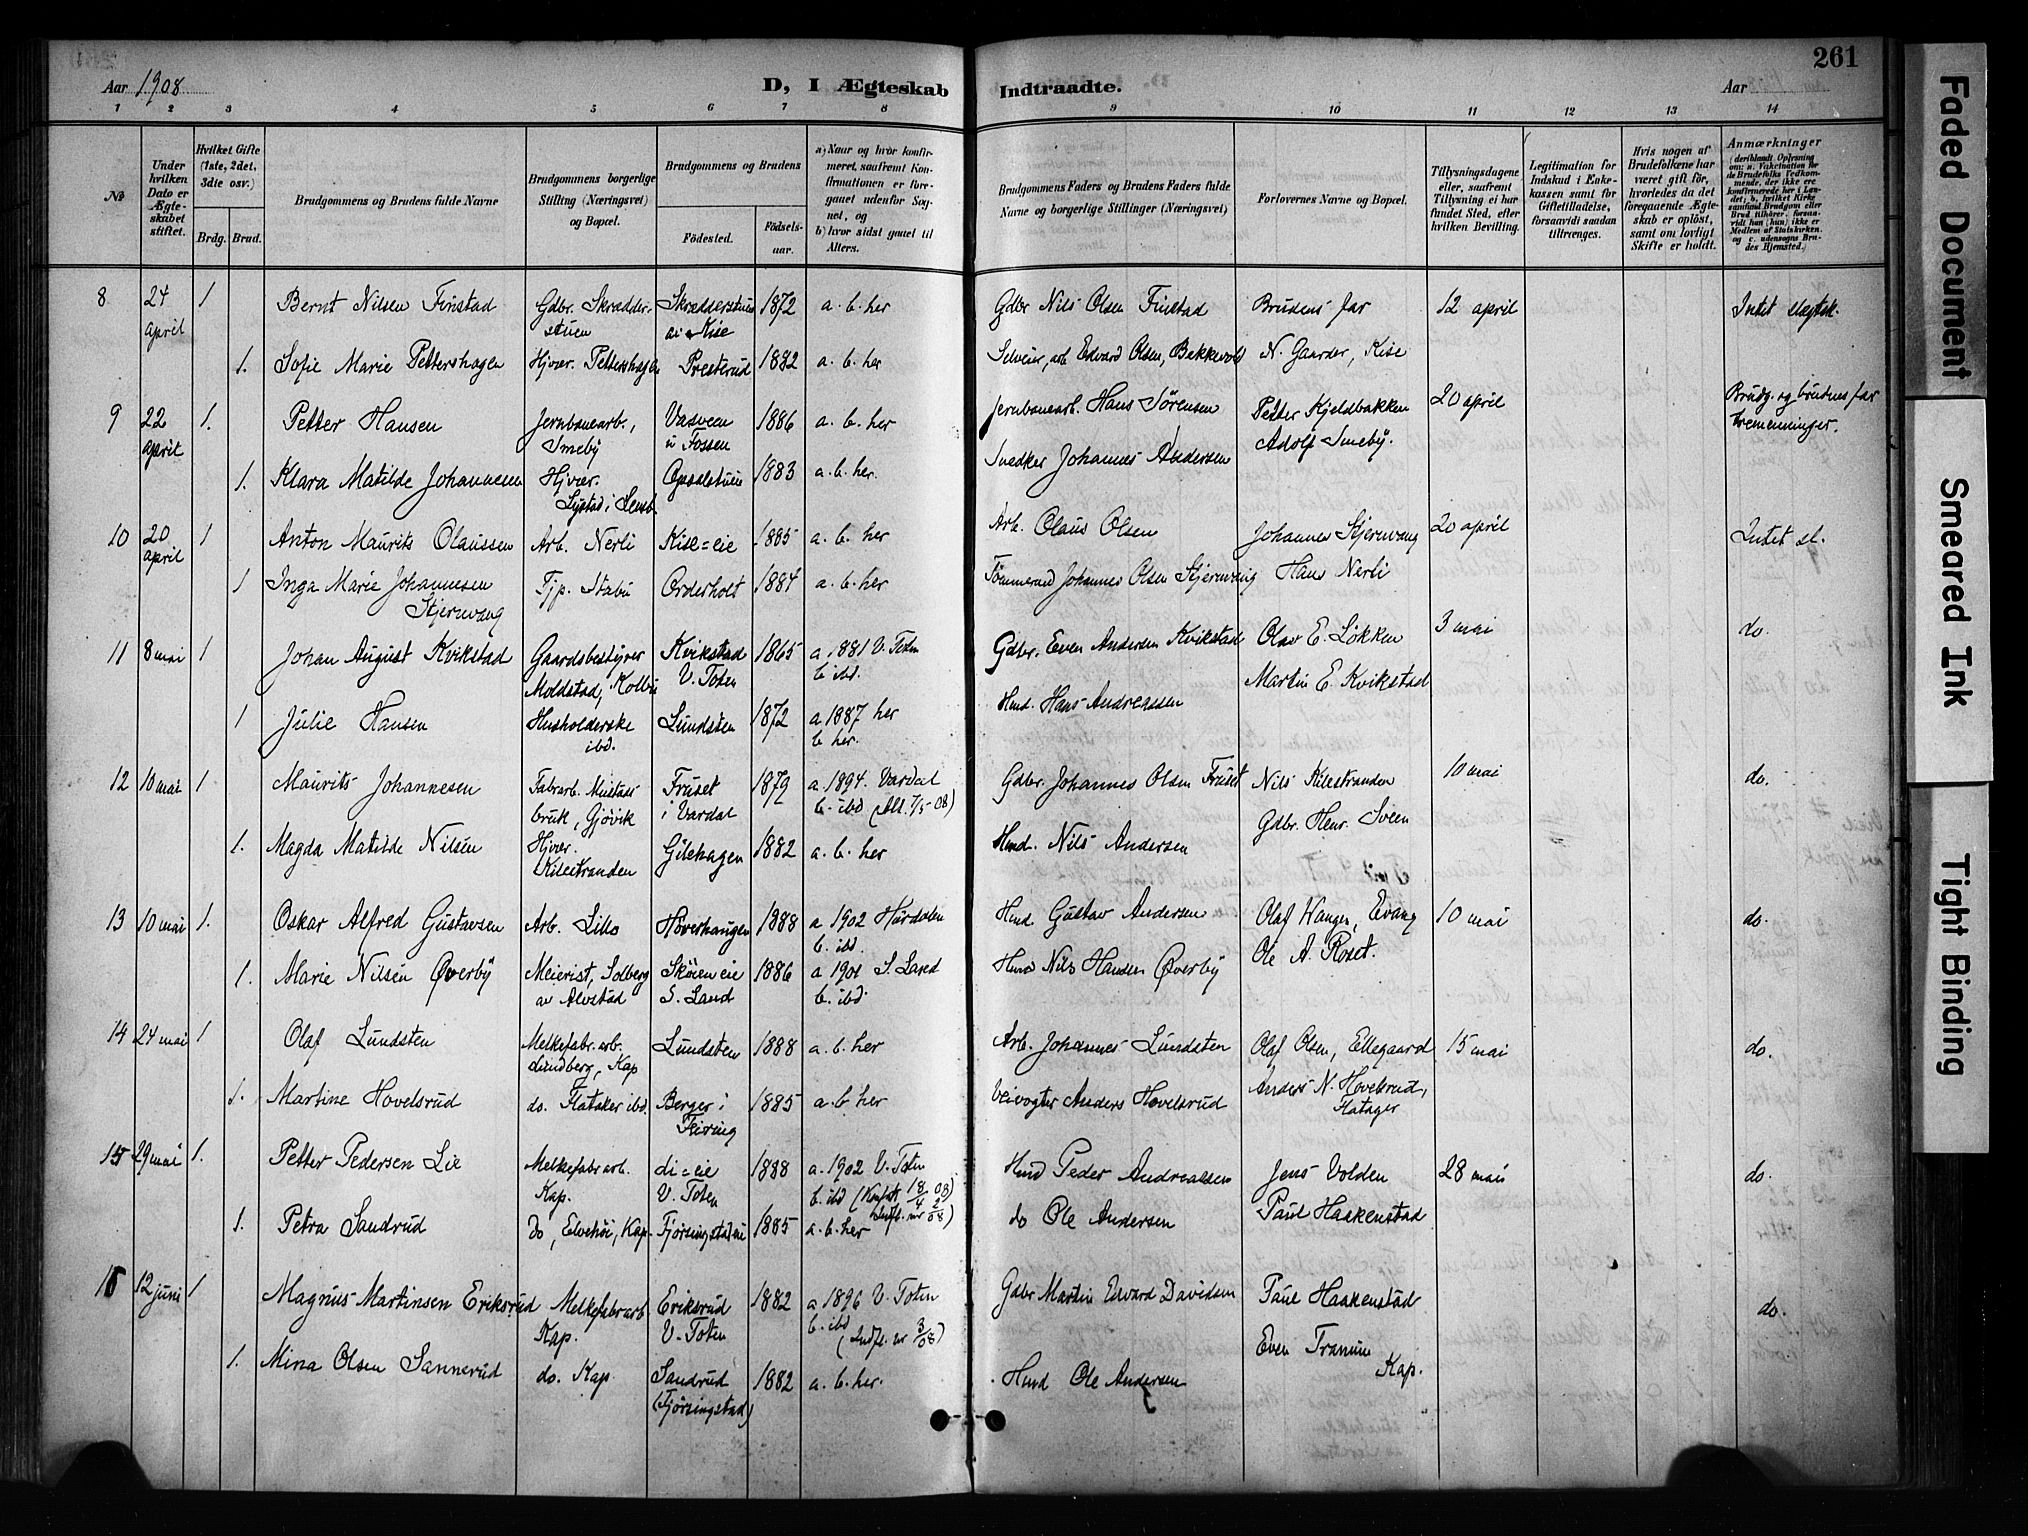 261
Aar 1908
D, I Ægteskab Indtraadte.
Aar
1 2 3 4 5 6 7 8 9 10 11 12 13 14
No
Under hvilken Dato er Ægteskabet stiftet.
Hvilket Gifte (1ste, 2det, 3die osv.)
Brdg. Brud.
Brudgommens og Brudens fulde Navne
Brudgommens borgerlige Stilling (Næringsvei) og Bopæl.
Brudgommens og Brudens
Fødested. Fødselsaar.
a) Naar og hvor konfirmeret, saafremt Konfirmationen er foregaaet udenfor Sognet, og
b) hvor sidst gaaet til Alters.
Brudgommens Faders og Brudens Faders fulde Navne og borgerlige Stillinger (Næringsvei)
Forlovernes Navne og Bopæl.
Tillysningsdagene eller, saafremt Tillysning ei har fundet Sted, efter hvilken Bevilling.
Legitimation for Indskud i Enkekassen samt for Giftetilladelse, forsaavidt saadan tiltrænges.
Hvis nogen af Brudefolkene har været gift før, hvorledes da det foregaaende Ægteskab er opløst, samt om lovligt Skifte er holdt.
Anmærkninger (deriblandt Oplysning om: a. Vakcination for de Brudefolks Vedkommende, der ikke ere konfirmerede her i Landet; b. hvilket Kirkesamfund Brudgom eller Brud tilhører, forsaavidt han (hun) ikke er Medlem af Statskirken, og c. udensogns Brudes Hjemsted.)
8 24 april 1 Bernt Nilsen Finstad Gdbr. Skrædderstuen Skrædderstuen av Kise 1872 a. b. her Gdbr Nils Olsen Finstad Brudens far 12 april Intet slegtsk.
1. Sofie Marie Pettershagen Hjvær. Pettershagen Presterud 1882 a. b. her Selveier, arb Edvard Olsen, Bakkevold N. Gaarder, Kise
9 22 april 1. Petter Hansen Jernbanearb., Smeby Vasveen u Fossen 1886 a. b. her Jernbanearb. Hans Sørensen Petter Kjeldbakken 20 april Brudg. og brudens far tremenninger.
1. Klara Matilde Johannesen Hjvær. Systad i Lensb. Opsalstuen 1883 a. b. her. Snedker Johannes Andersen Adolf Smeby.
10 20 april 1 Anton Maurits Olaussen Arb. Nerli Kise=eie 1885 a. b. her Arb. Olaus Olsen Johannes Stjernvang 20 april Intet sl.
1 Inga Marie Johannesen Stjernvang Tjp. Stabu Orderholt 1884 a. b. her Tømmermand Johannes Olsen Stjernvang Hans Nerli
11 8 mai 1 Johan August Kvikstad Gaardsbestyrer Moldstad, Kolbu Kvikstad V. Toten 1865 a 1881 V. Toten b ibd. Gdbr. Even Andersen Kvikstad Olav E. Løkken 3 mai do.
1 Julie Hansen Husholderske ibd. Lundsten 1872 a 1887 her b her. Hmd. Hans Andreassen Martin E. Kvikstad
12 10 mai 1 Maurits Johannesen Fabrarb. Mustads bruk, Gjøvik Fruset i Vardal 1879 a. 1894. Vardal b. ibd (Alt. 7/5-08) Gdbr. Johannes Olsen Fruset Nils Kilestranden 10 mai do.
1. Magda Matilde Nilsen Hjvær. Kilestranden Gilehagen 1882 a. b. her Hmd. Nils Andersen Gdbr. Henr. Sveen
13 10 mai 1. Oskar Alfred Gustavsen Arb. Lillo Høverhaugen 1888 a 1902 Hurdalen b. ibd. Hmd Gustav Andersen Olaf Wangen, Evang 10 mai do.
1. Marie Nilsen Øverby Meierist, Solberg av Alvstad Skøien eie S. Land 1886 a 1901 S. Land b. ibd. Hmd Nils Hansen Øverby Ole A. Roset.
14 24 mai 1 Olaf Lundsten Melkefabr. arb. Lundberg, Kap Lundsten 1888 a. b. her Arb. Johannes Lundsten Olaf Olsen, Ellegaard 15 mai do.
1. Martine Hovelsrud do. Flataker ibd. Berger i Feiring 1885 a. b. her Veivogter Anders Hovelsrud Anders N. Hovelsrud, Flatager
15 29 mai 1. Petter Pedersen Lie Melkefabrarb. Kap. Li=eie V. Toten 1888 a. 1902 V. Toten b. ibd (18/4 08) Indfl. nr 2/08) Hmd Peder Andreassen Jens Volden 28 mai do.
1. Petra Sandrud do, Elvehøi, Kap. Fjørsingstadeie 1885 a. b. her do Ole Andersen Paul Haakenstad
16 12 juni 1 Magnus Martinsen Eriksrud Melkefabrarb Kap. Eriksrud V. Toten 1882 a 1896 V. Toten b. ibd (Indfl. nr 3/08) Gdbr Martin Edvard Davidsen Paul Haakenstad do.
1. Mina Olsen Sannerud do. Kap. Sandrud (Fjørsingstad) 1882 a. b. her. Hmd Ole Andersen Even Tranum Kap.
Faded Document
Smeared Ink
Tight Binding